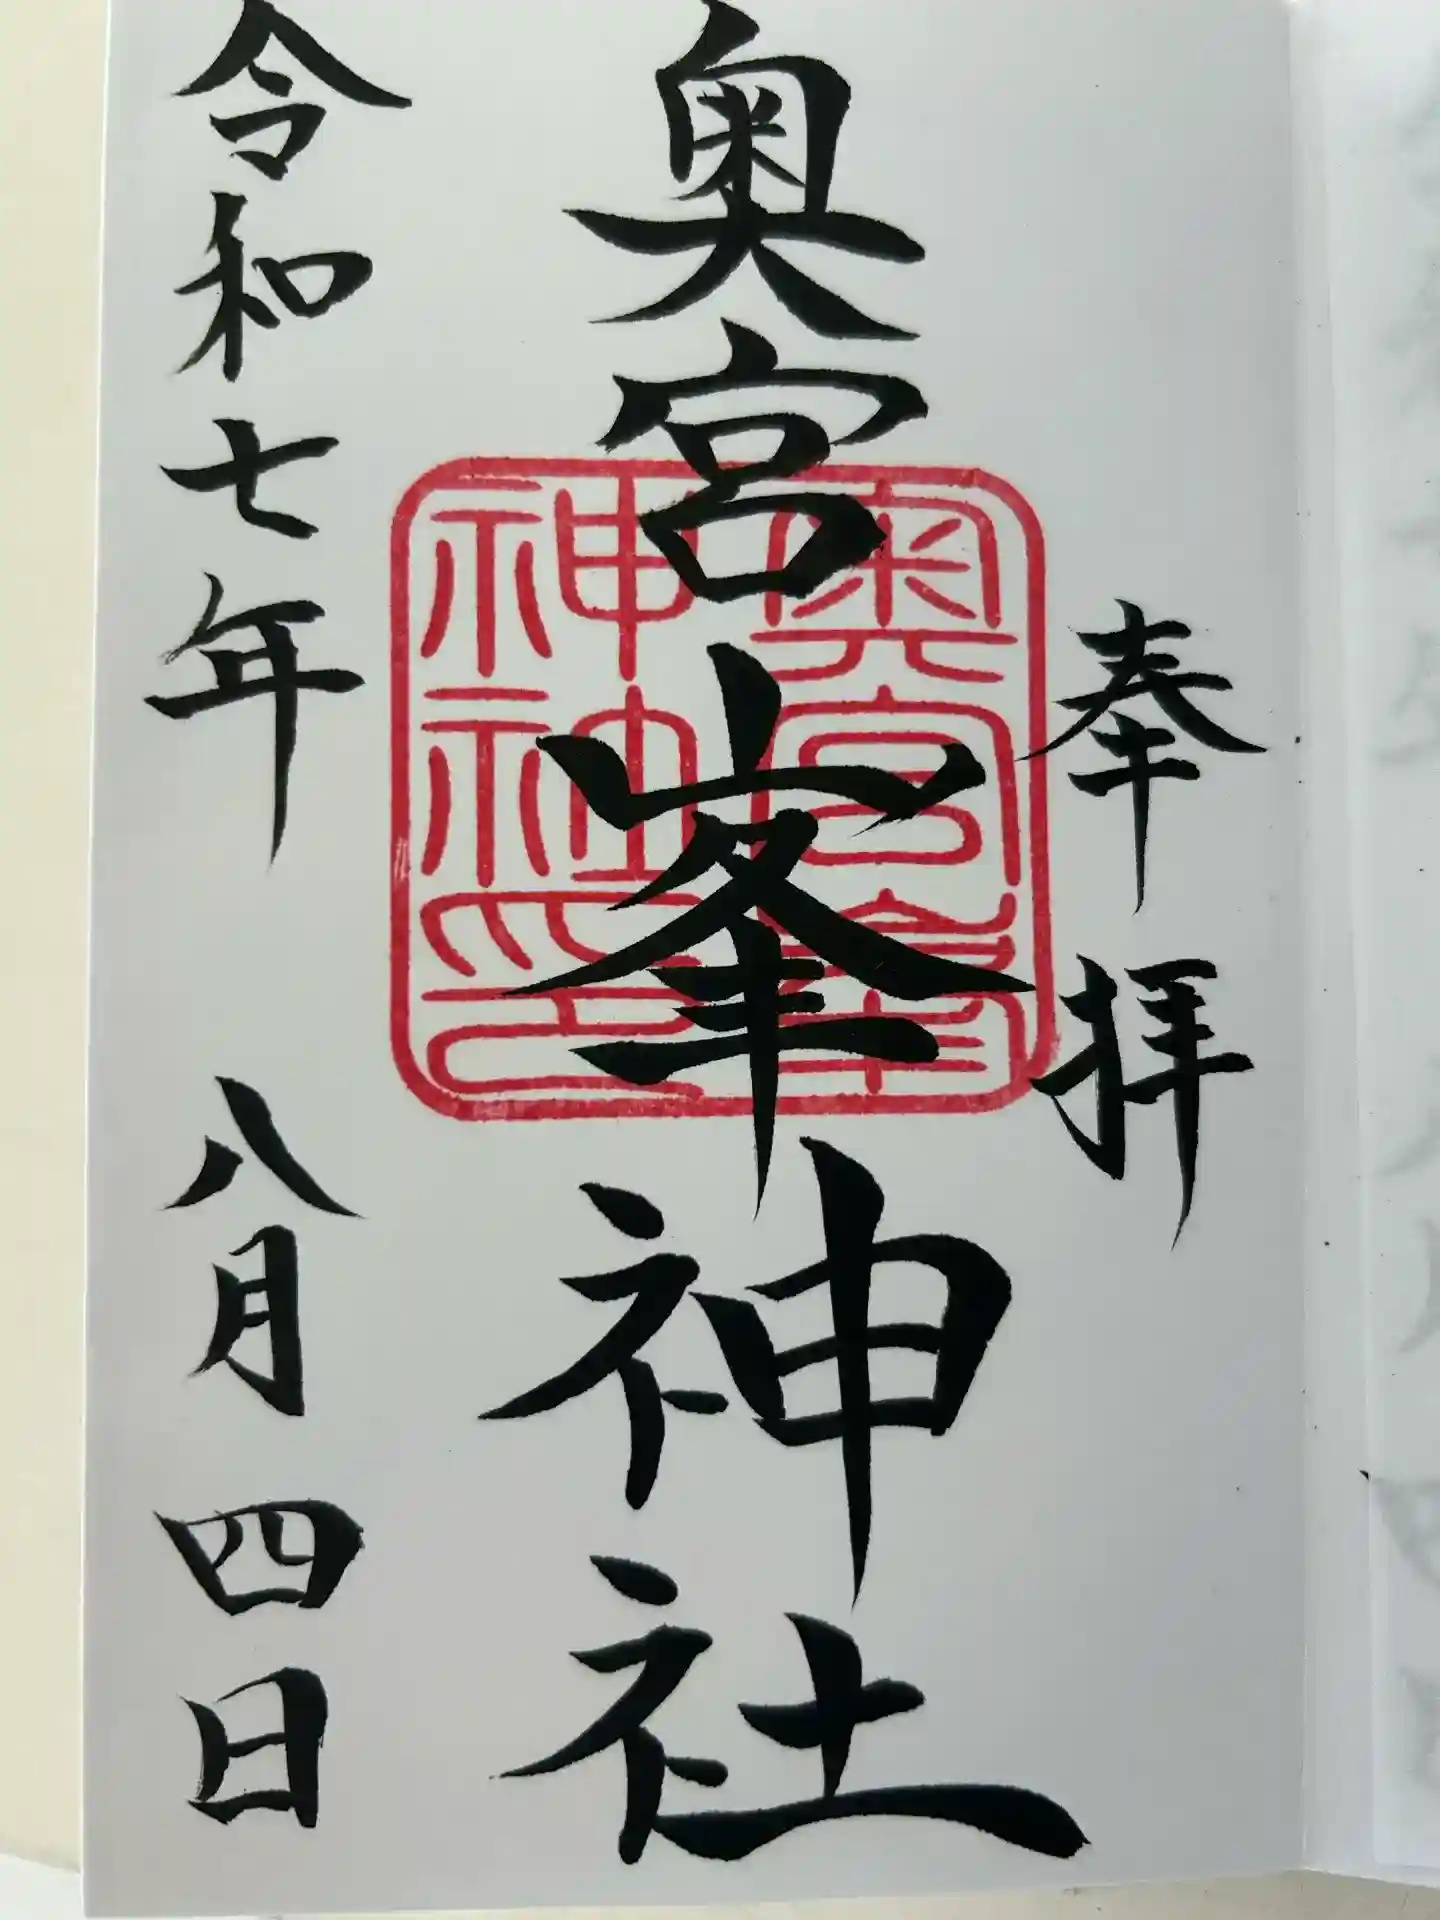 奉拝
奥宮峯神社
奥宮峯
神社印
令和七年 八月四日